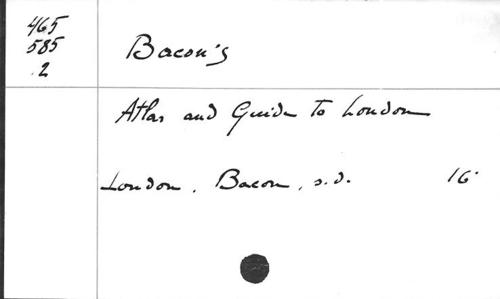 465
585
.2
Bacon's
Atlas and Guide to London
London, Bacon, s.d. 16°